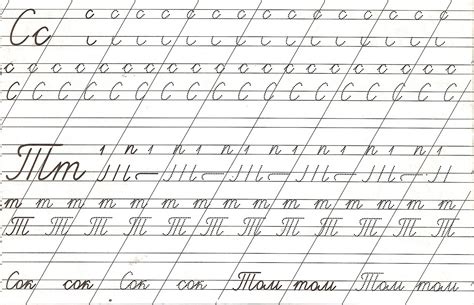 Сс с с с с с с с с с с с с с с
с с с с с с с с с с с с с с с с с с с с с
С С С С С С С С С С С С С С С С С
Тт
т т т т т т т т т т т т т т т т т
Т Т Т Т Т Т Т Т Т Т Т Т
Сок сок Сок сок Том том Том том